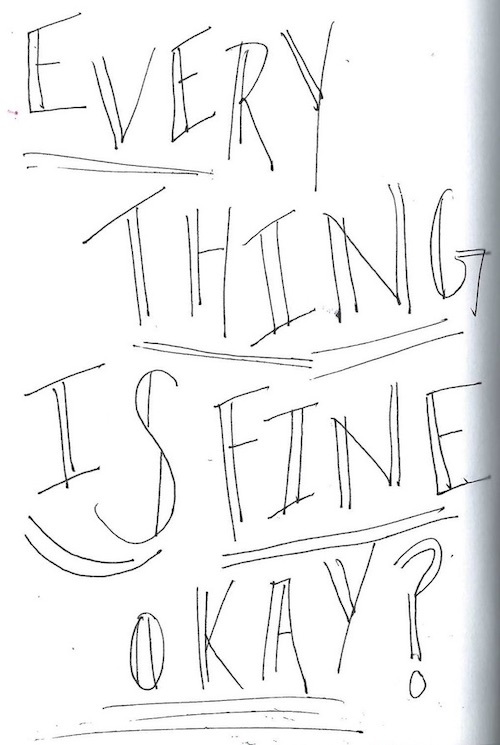 EVERY
THING
IS FINE
OKAY?